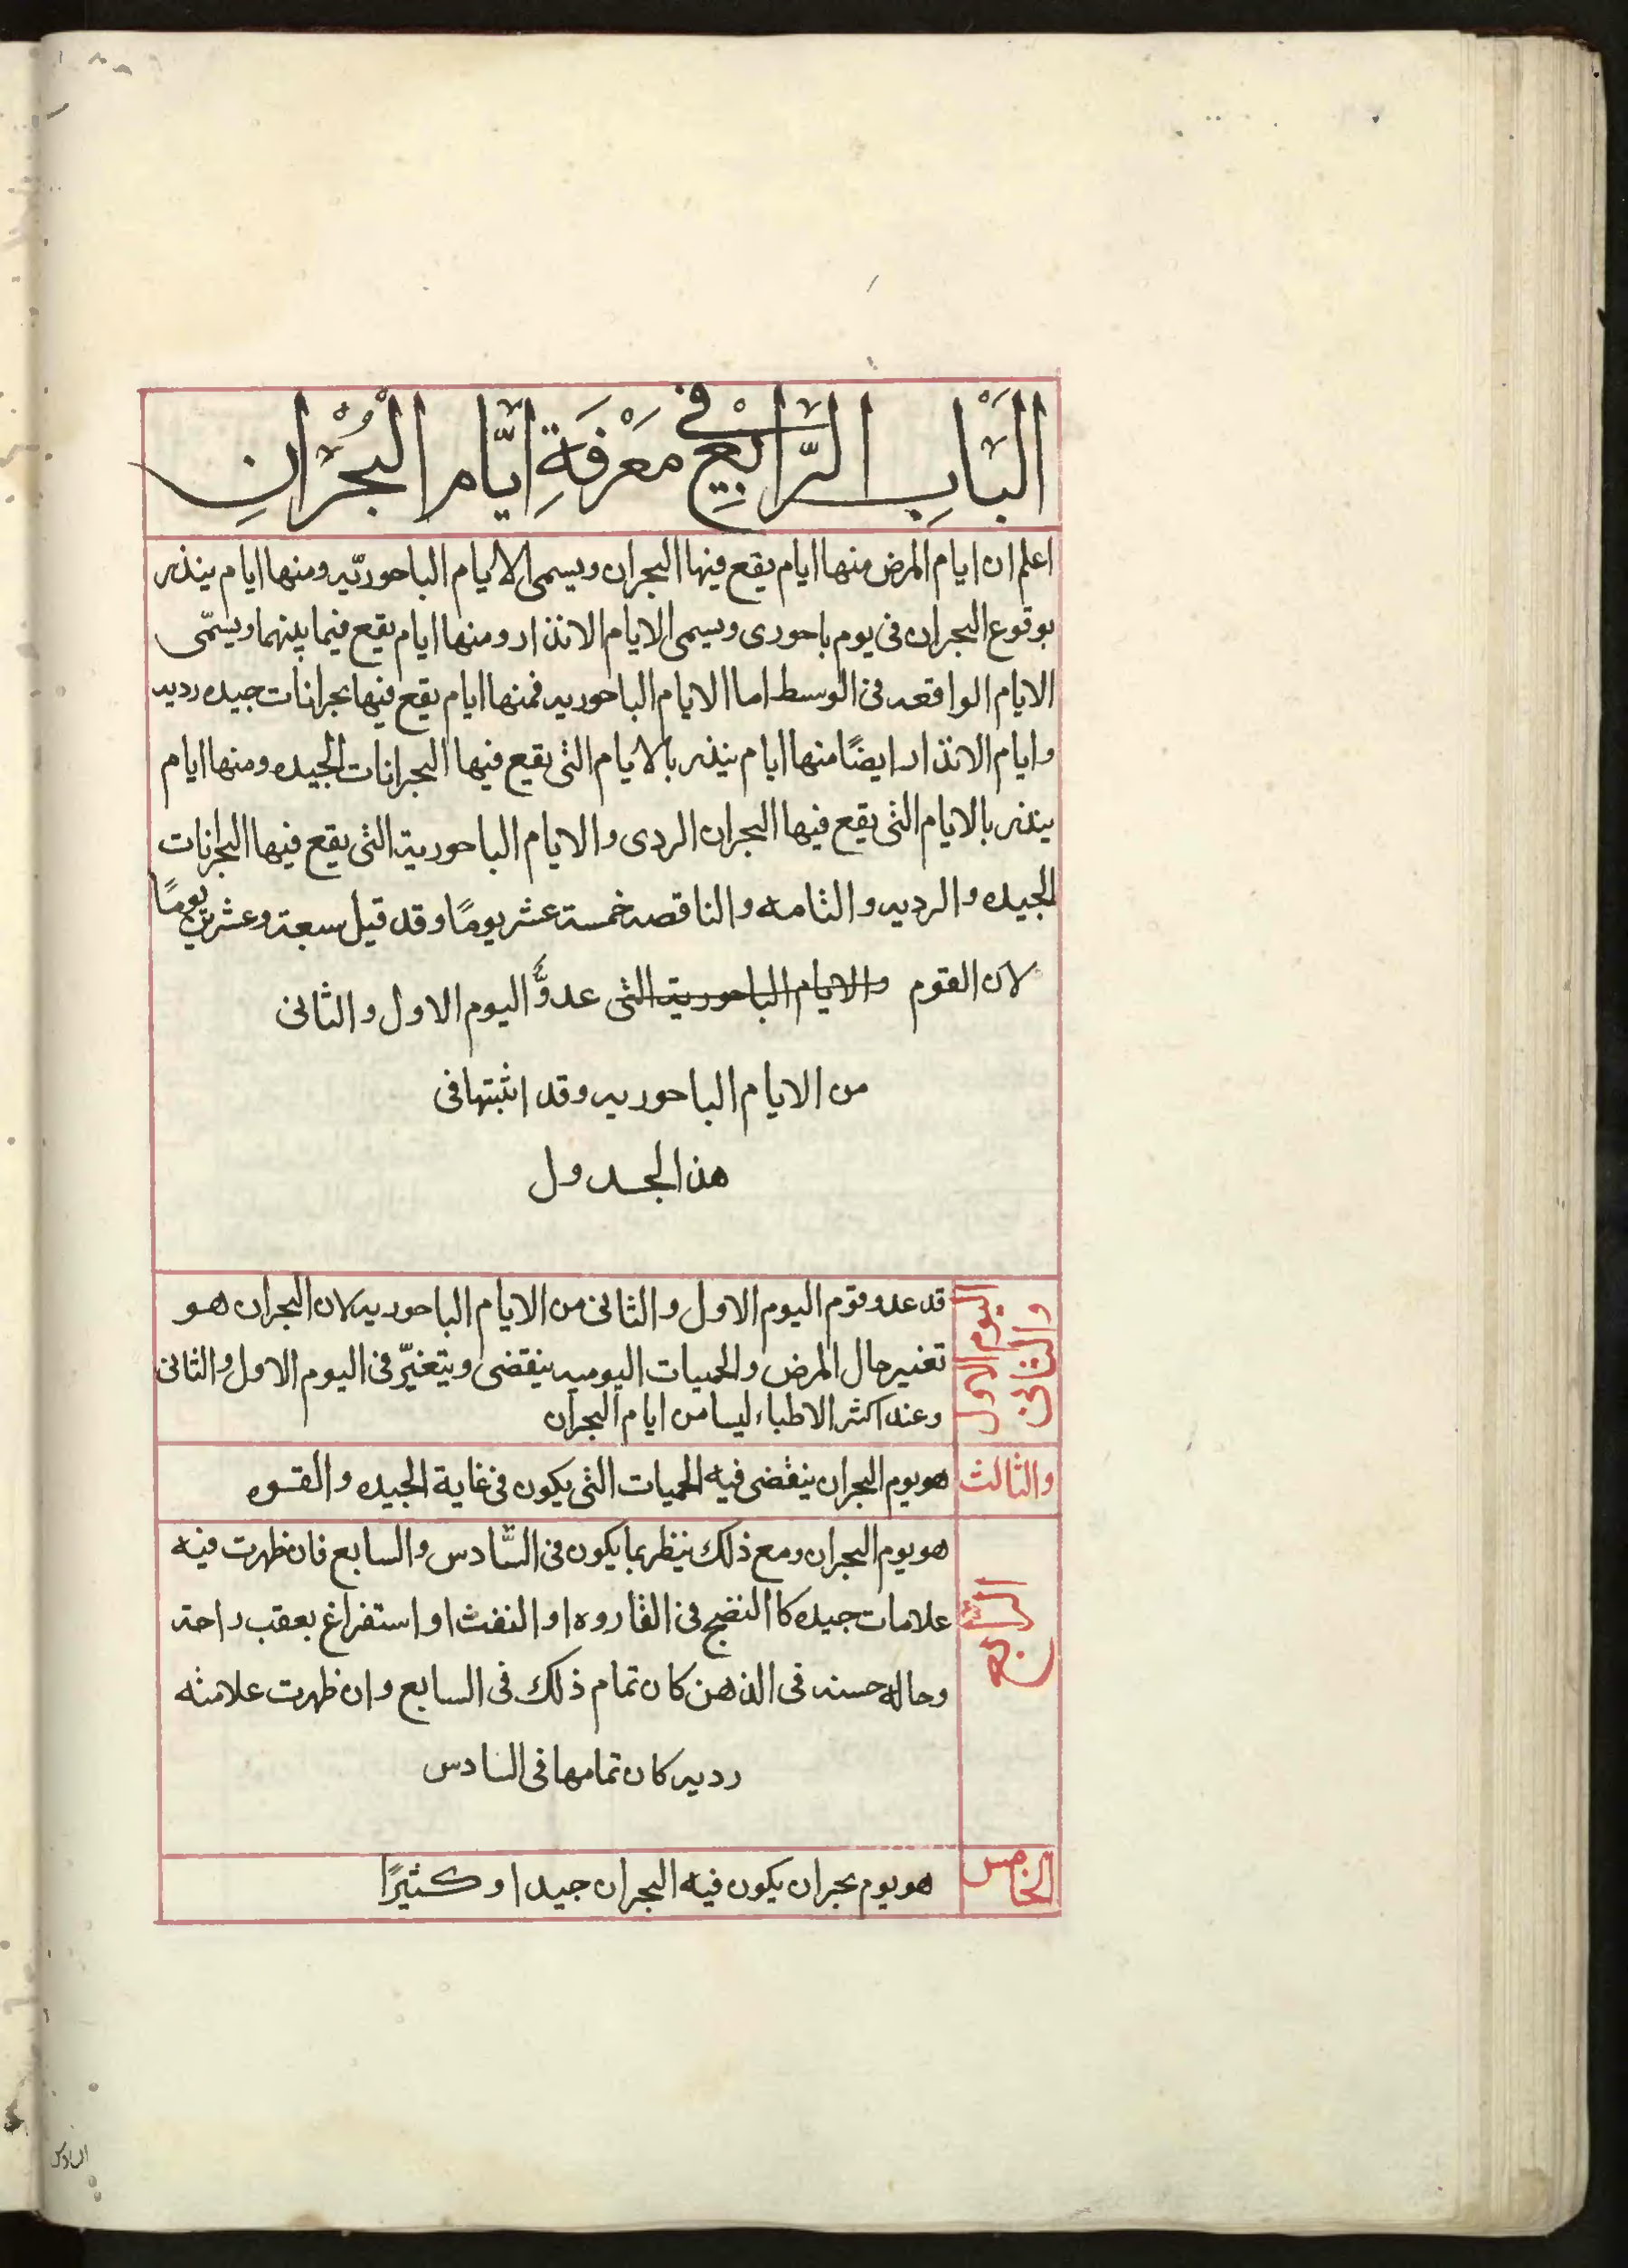 الباب الرابع في معرفة ايام البحران
اعلم ان ايام المرض منها ايام يقع فيها البحران ويسمى الايام الباحوريه ومنها ايام ينذر
بوقوع البحران فى يوم باحورى ويسمى الايام الانذار ومنها ايام يقع فيما بينهما ويسمّى
الايام الواقعه فى الوسط اما الايام الباحوريه فمنها ايام يقع فيها بحرانات جيده رديه
وايام الانذار ايضًا منها ايام ينذر بالايام التى يقع فيها البحرانات الجيده ومنها ايام
ينذر بالايام التى يقع فيها البحران الردى والايام الباحورية التى يقع فيها البحرانات
الجيده والرديه والتامه والناقصه خمسة عشر يومًا وقد قيل سبعة وعشرين يومًا
لان القوم والايام الباحورية التى عدوَّ اليوم الاول والثانى
من الايام الباحوريه وقد اثبتها فى
هذا الجدول
اليوم الاول
والثانى
قد عدو قوم اليوم الاول والثانى من الايام الباحوريه لان البحران هو
تغير حال المرض والحميات اليوميه ينقضى ويتغيّر فى اليوم الاول والثانى
وعند اكثر الاطباء ليسا من ايام البحران
والثالث
هو يوم البحران ينقضى فيه الحميات التى يكون فى غاية الجيده والقوه
الرابع
هو يوم البحران ومع ذلك ينظر بما يكون فى السّادس والسابع فان ظهرت فيه
علامات جيده كا النضج فى القاروه او النفث او استفراغ بعقب راحة
وحاله حسنه فى الذهن كان تمام ذلك فى السابع وان ظهرت علامته
رديه كان تمامها فى السادس
الخامس
هو يوم بحران يكون فيه البحران جيدا وكثيرًا
السادس